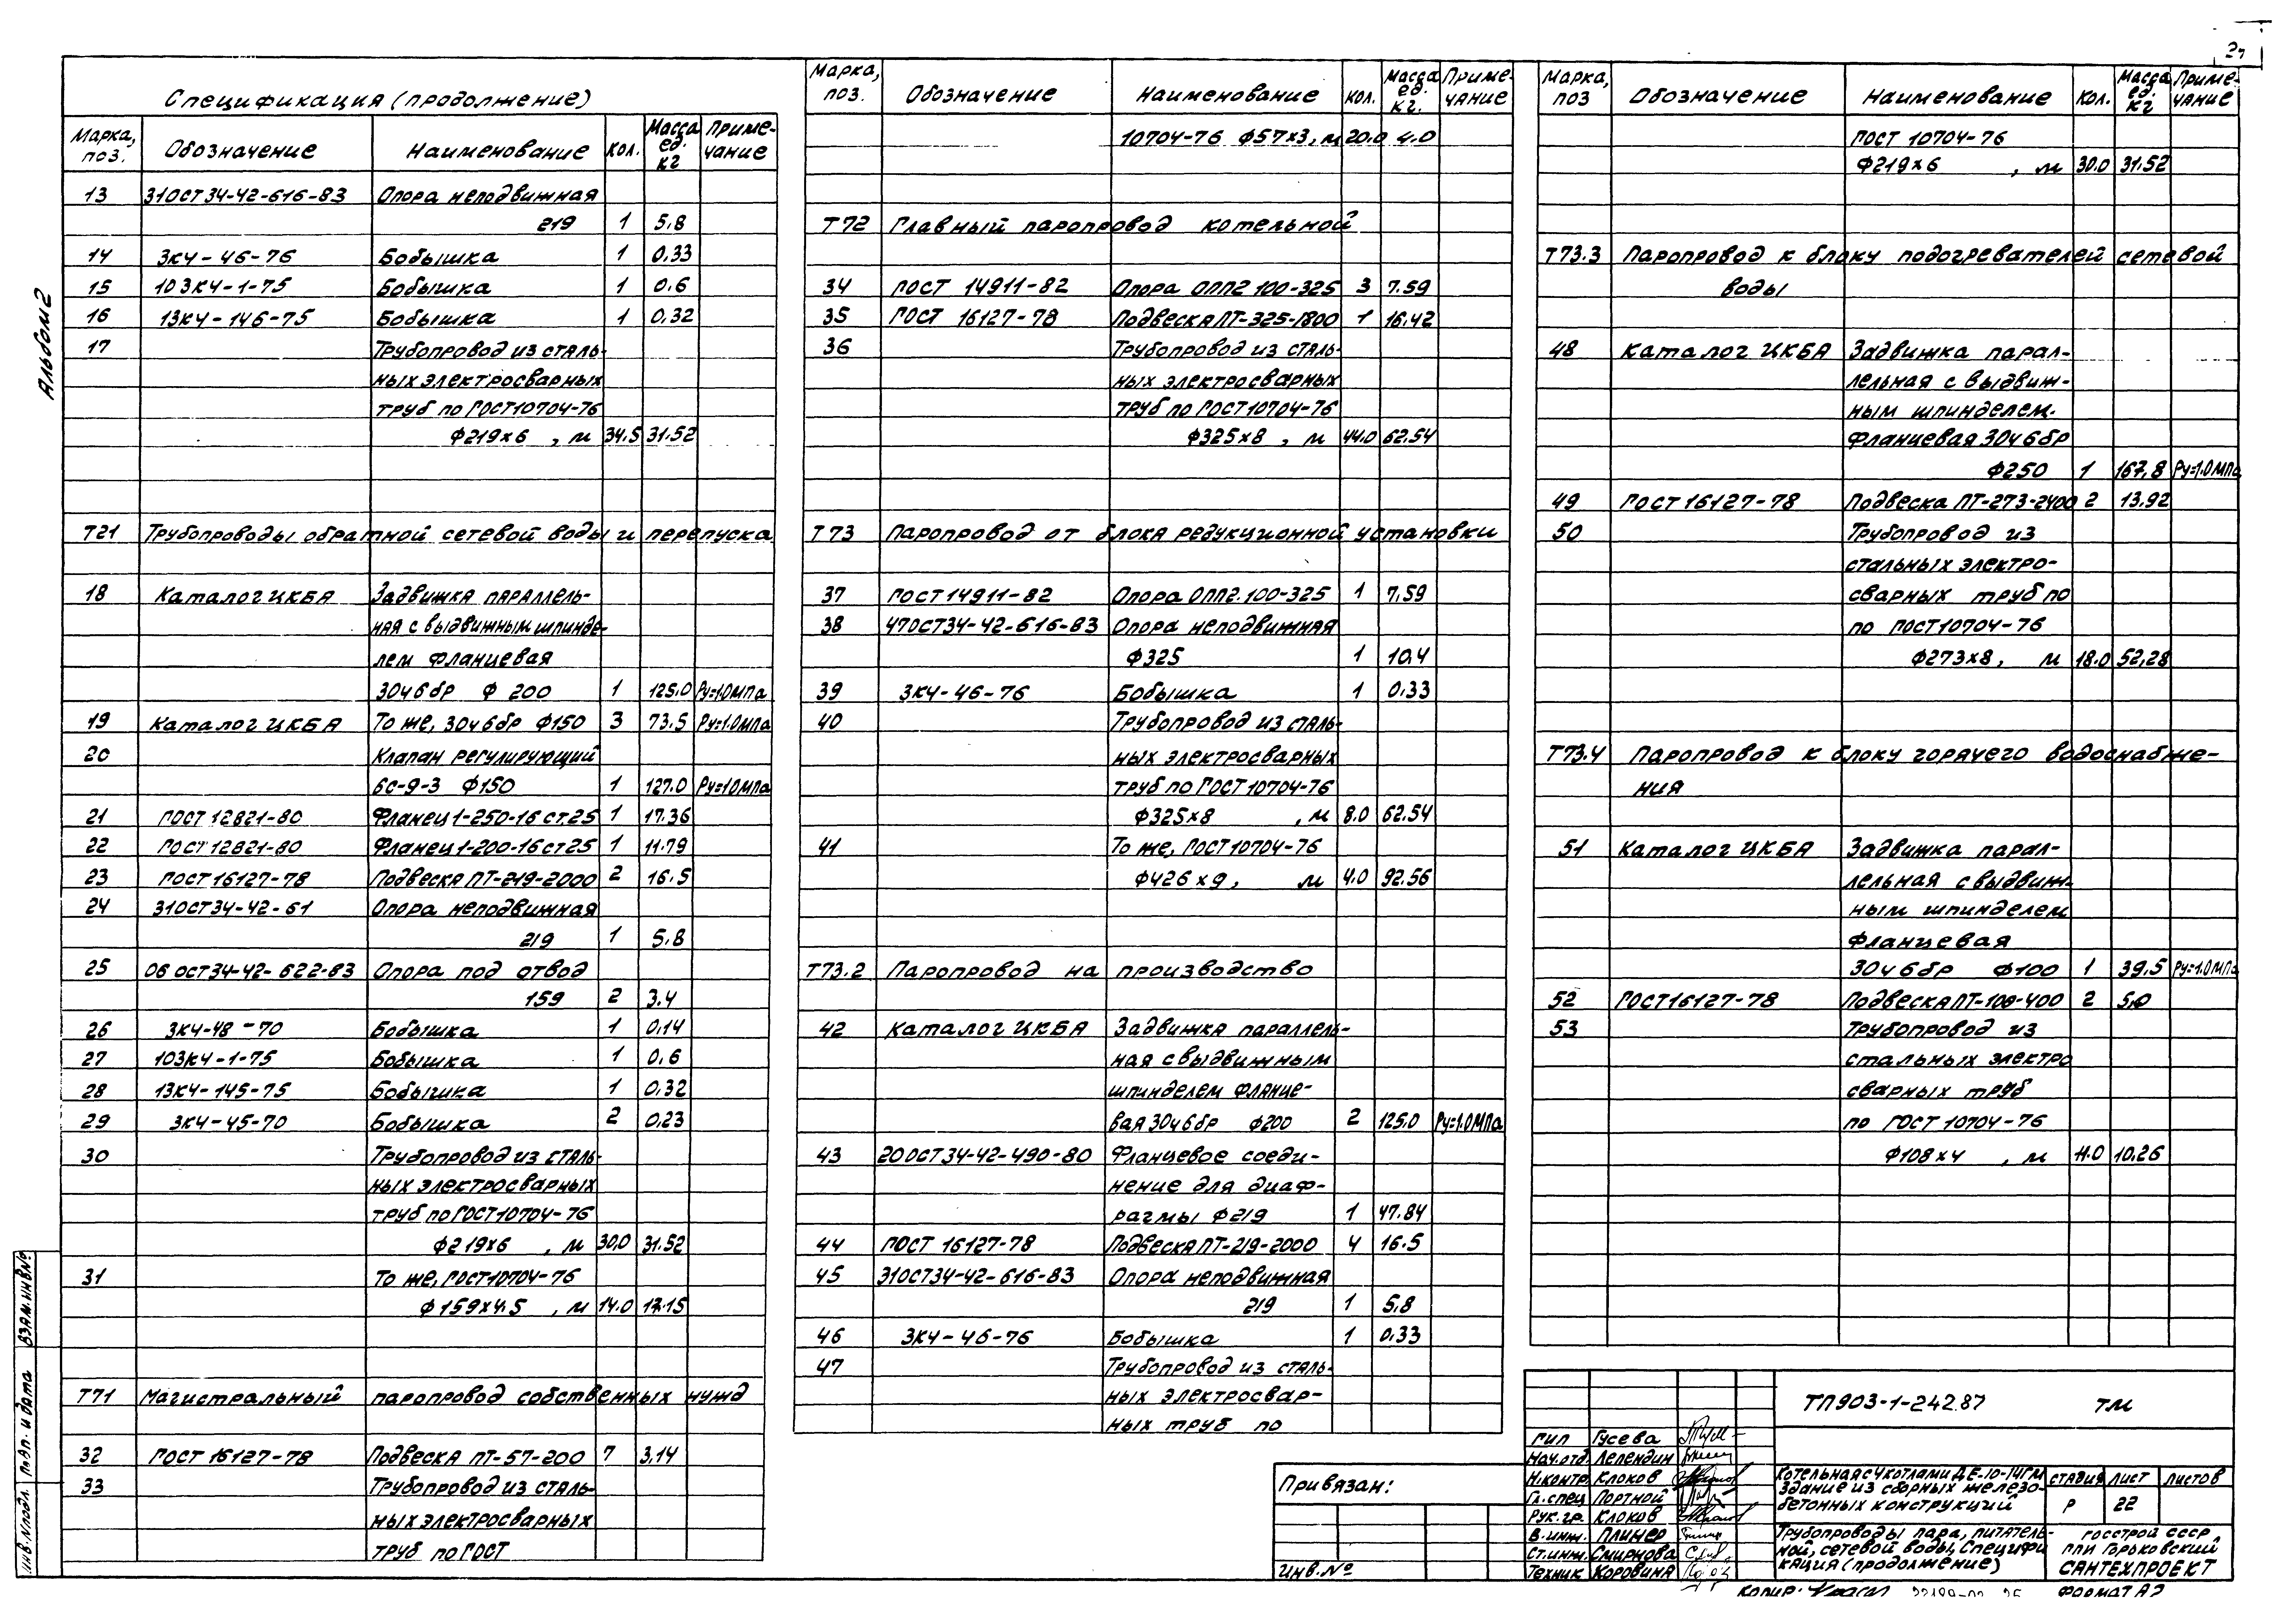 27
Альбом 2
Спецификация (продолжение)
Марка, поз. Обозначение Наименование кол. Масса ед. кг Примечание
13 31ОСТ34-42-616-83 Опора неподвижная
219 1 5,8
14 3К4-46-76 Бобышка 1 0,33
15 103К4-1-75 Бобышка 1 0,6
16 13К4-146-75 Бобышка 1 0,32
17 Трубопровод из сталь-
ных электросварных
труб по ГОСТ10704-76
Ф219х6 , м 34,5 31.52
Т21 Трубопроводы обратной сетевой воды и перепуска
18 Каталог ЦКБА Задвижка параллель-
ная с выдвижным шпинде-
лем фланцевая
30ч6бр Ф 200 1 125.0 Ру=1.0мпа
19 Каталог ЦКБА То же, 30ч6бр Ф150 3 73.5 Ру=1.0мпа
20 Клапан регулирующий
6с-9-3 Ф150 1 127.0 Ру=1.0мпа
21 ГОСТ 12821-80 Фланец 1-250-16 ст.25 1 17.36
22 ГОСТ 12821-80 Фланец 1-200-16 ст25 1 11.79
23 ГОСТ 16127-78 Подвеска ПТ-219-2000 2 16.5
24 31ОСТ34-42-61 Опора неподвижная
219 1 5.8
25 06 ост34-42-622-83 Опора под отвод
159 2 3.4
26 3К4-48-70 Бобышка 1 0,14
27 103К4-1-75 Бобышка 1 0,6
28 13К4-145-75 Бобышка 1 0,32
29 3К4-45-70 Бобышка 2 0,23
30 Трубопровод из сталь-
ных электросварных
труб по ГОСТ10704-76
Ф219х6 , м 30,0 31.52
31 То же, ГОСТ10704-76
Ф159х4.5 , м 14.0 17.15
Т71 Магистральный паропровод собственных нужд
32 ГОСТ 16127-78 Подвеска ПТ-57-200 7 3,14
33 Трубопровод из сталь-
ных электросварных
труб по ГОСТ
Марка, поз. Обозначение Наименование кол. Масса ед. кг. Примечание
10704-76 Ф57х3, м 20.0 4.0
Т72 Главный паропровод котельной
34 ГОСТ 14911-82 Опора ОПП2 100-325 3 7.59
35 ГОСТ 16127-78 Подвеска ПТ-325-1800 1 16,42
36 Трубопровод из сталь-
ных электросварных
труб по ГОСТ10704-76
Ф325х8 , м 44.0 62.54
Т73 Паропровод от блока редукционной установки
37 ГОСТ 14911-82 Опора ОПП2.100-325 1 7,59
38 47ОСТ34-42-616-83 Опора неподвижная
Ф325 1 10,4
39 3К4-46-76 Бобышка 1 0.33
40 Трубопровод из сталь-
ных электросварных
труб по ГОСТ10704-76
Ф325х8 , м 8.0 62.54
41 То же, ГОСТ10704-76
Ф426х9, м 4.0 92.56
Т73.2 Паропровод на производство
42 Каталог ЦКБА Задвижка параллель-
ная с выдвижным
шпинделем фланце-
вая 30ч6бр Ф200 2 125.0 Ру=1.0МПа
43 20ОСТ34-42-490-80 Фланцевое соеди-
нение для диаф-
рагмы Ф219 1 47.84
44 ГОСТ 16127-78 Подвеска ПТ-219-2000 4 16.5
45 31ОСТ34-42-616-83 Опора неподвижная
219 1 5,8
46 3К4-46-76 Бобышка 1 0,33
47 Трубопровод из сталь-
ных электросвар-
ных труб по
Марка, поз Обозначение Наименование кол. Масса ед. кг Примечание
ГОСТ 10704-76
Ф219х6 , м 30.0 31.52
Т73.3 Паропровод к блоку подогревателей сетевой
воды
48 Каталог ЦКБА Задвижка парал-
лельная с выдвиж-
ным шпинделем.
Фланцевая 30ч6бр
Ф250 1 167,8 Ру=1.0мпа
49 ГОСТ 16127-78 Подвеска ПТ-273-2400 2 13.92
50 Трубопровод из
стальных электро-
сварных труб по
по ГОСТ10704-76
Ф273х8, м 18.0 52,28
Т73.4 Паропровод к блоку горячего водоснабже-
ния
51 Каталог ЦКБА Задвижка парал-
лельная с выдвиж-
ным шпинделем
фланцевая
30ч6бр Ф100 1 39,5 Ру=1.0МПа
52 ГОСТ16127-78 Подвеска ПТ-108-400 2 5,0
53 Трубопровод из
стальных электро
сварных труб
по ГОСТ 10704-76
Ф108х4 , м 11.0 10.26
ТП903-1-242.87 ТМ
ГИП Гусева
Нач.отд. Лелендин
Н.контр. Клоков
Гл.спец Портной
Рук.гр. Клоков
В.инж. Плинер
Ст.инж. Смирнова
Техник Коровина
Котельная с 4 котлами ДЕ-10-14ГМ
Здание из сборных железо-
бетонных конструкций
стадия лист листов
Р 22
Трубопроводы пара, питатель-
ной, сетевой воды. Специфи
кация (продолжение)
Госстрой СССР
ГПИ Горьковский
САНТЕХПРОЕКТ
Привязан:
Инв.№
Инв.№подл. Подп. и дата Взам.инв№
Копир. 22199-02 Формат А2